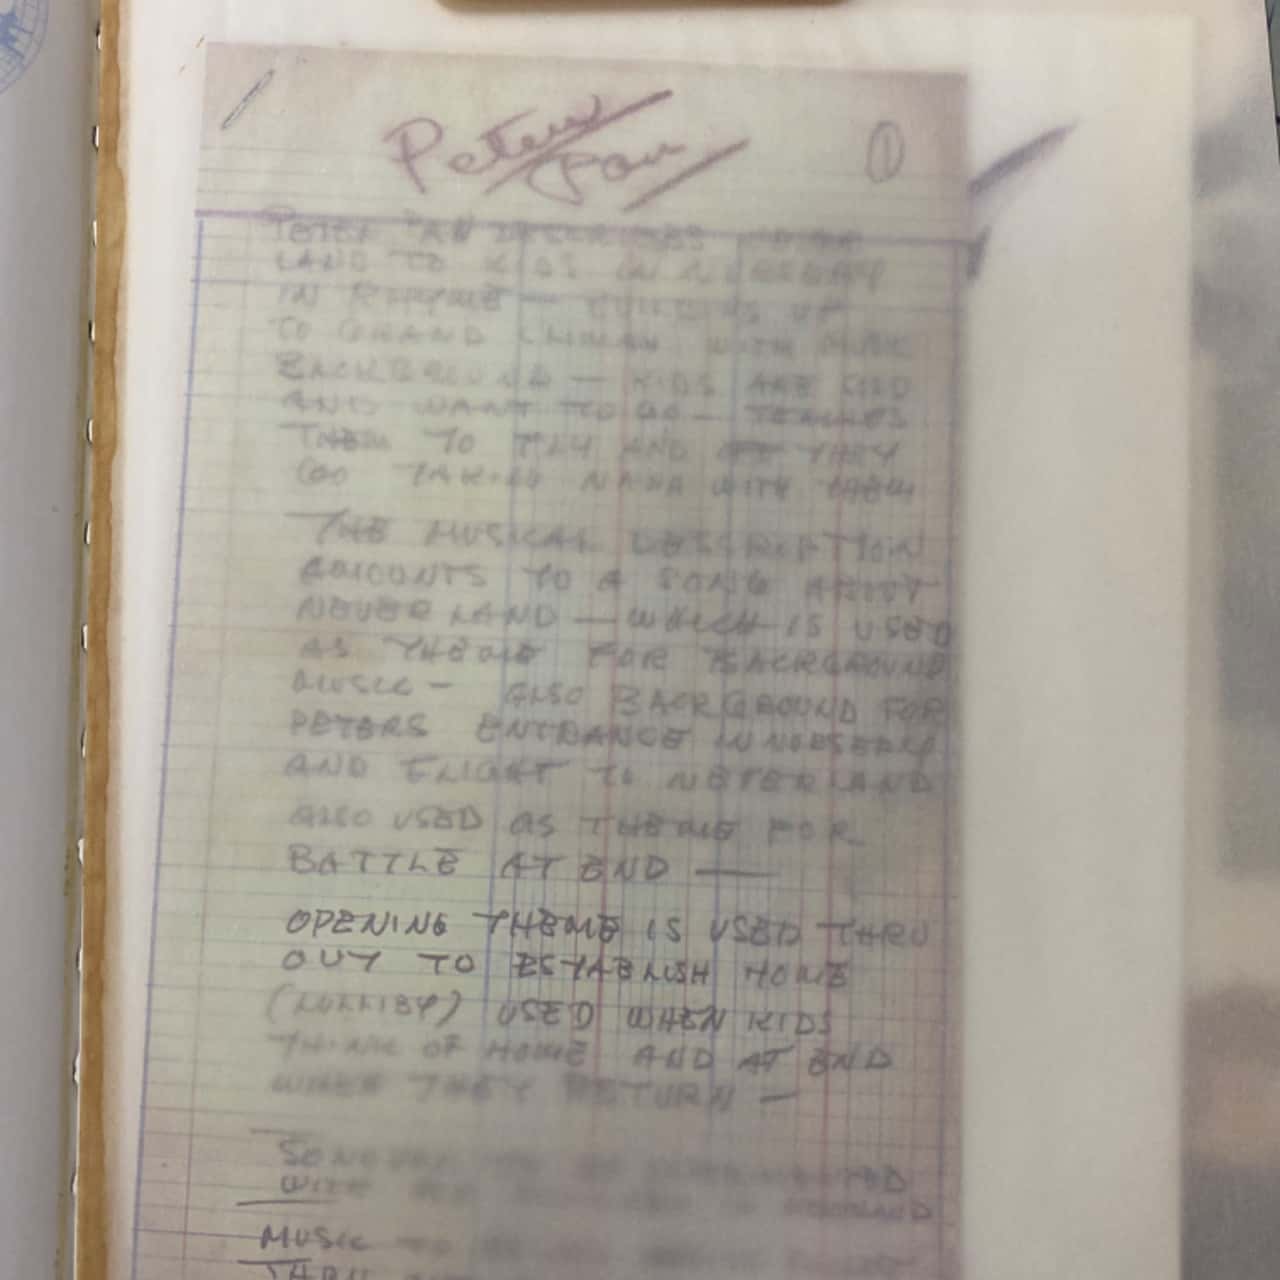 Peter Pan
1
PETER PAN DESCRIBES
LAND TO KIDS IN NURSERY
IN RHYME — BUILDING UP
TO GRAND CLIMAX WITH
BACKGROUND — KIDS ARE SOLD
AND WANT TO GO — TEACHES
THEM TO FLY AND THEY
GO TAKING NANA WITH THEM
THE MUSICAL DESCRIPTION
AMOUNTS TO A SONG ABOUT
NEVERLAND — WHICH IS USED
AS THEME FOR BACKGROUND
MUSIC — ALSO BACKGROUND FOR
PETERS ENTRANCE IN NURSERY
AND FLIGHT TO NEVERLAND
ALSO USED AS THEME FOR
BATTLE AT END —
OPENING THEME IS USED THRU
OUT TO ESTABLISH HOME
(LULLIBY) USED WHEN KIDS
THINK OF HOME AND AT END
WHEN THEY RETURN —
WITH
MUSIC
THRU